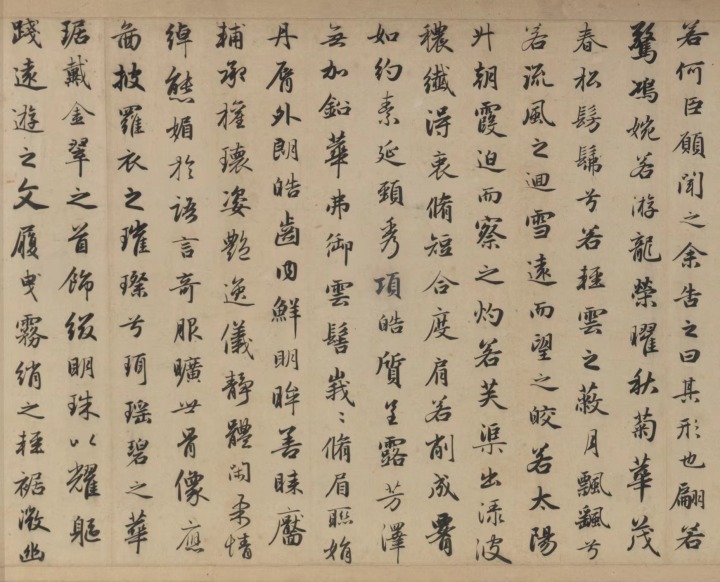 若何臣願聞之余告之曰其形也翩若
驚鴻婉若游龍榮曜秋菊華茂
春松髣髴兮若輕雲之蔽月飄颻兮
若流風之迴雪遠而望之皎若太陽
升朝霞迫而察之灼若芙渠出淥波
穠纖得衷脩短合度肩若削成腰
如約素延頸秀項皓質呈露芳澤
無加鉛華弗御雲髻峩〻脩眉聯娟
丹脣外朗皓齒内鮮明眸善睞靨
輔承權瓌姿艷逸儀靜體閑柔情
綽態媚於語言奇服曠世骨像應
啚披羅衣之璀璨兮珥瑶碧之華
琚戴金翠之首飾綴明珠以耀軀
踐遠遊之文履曳霧綃之輕裾微幽